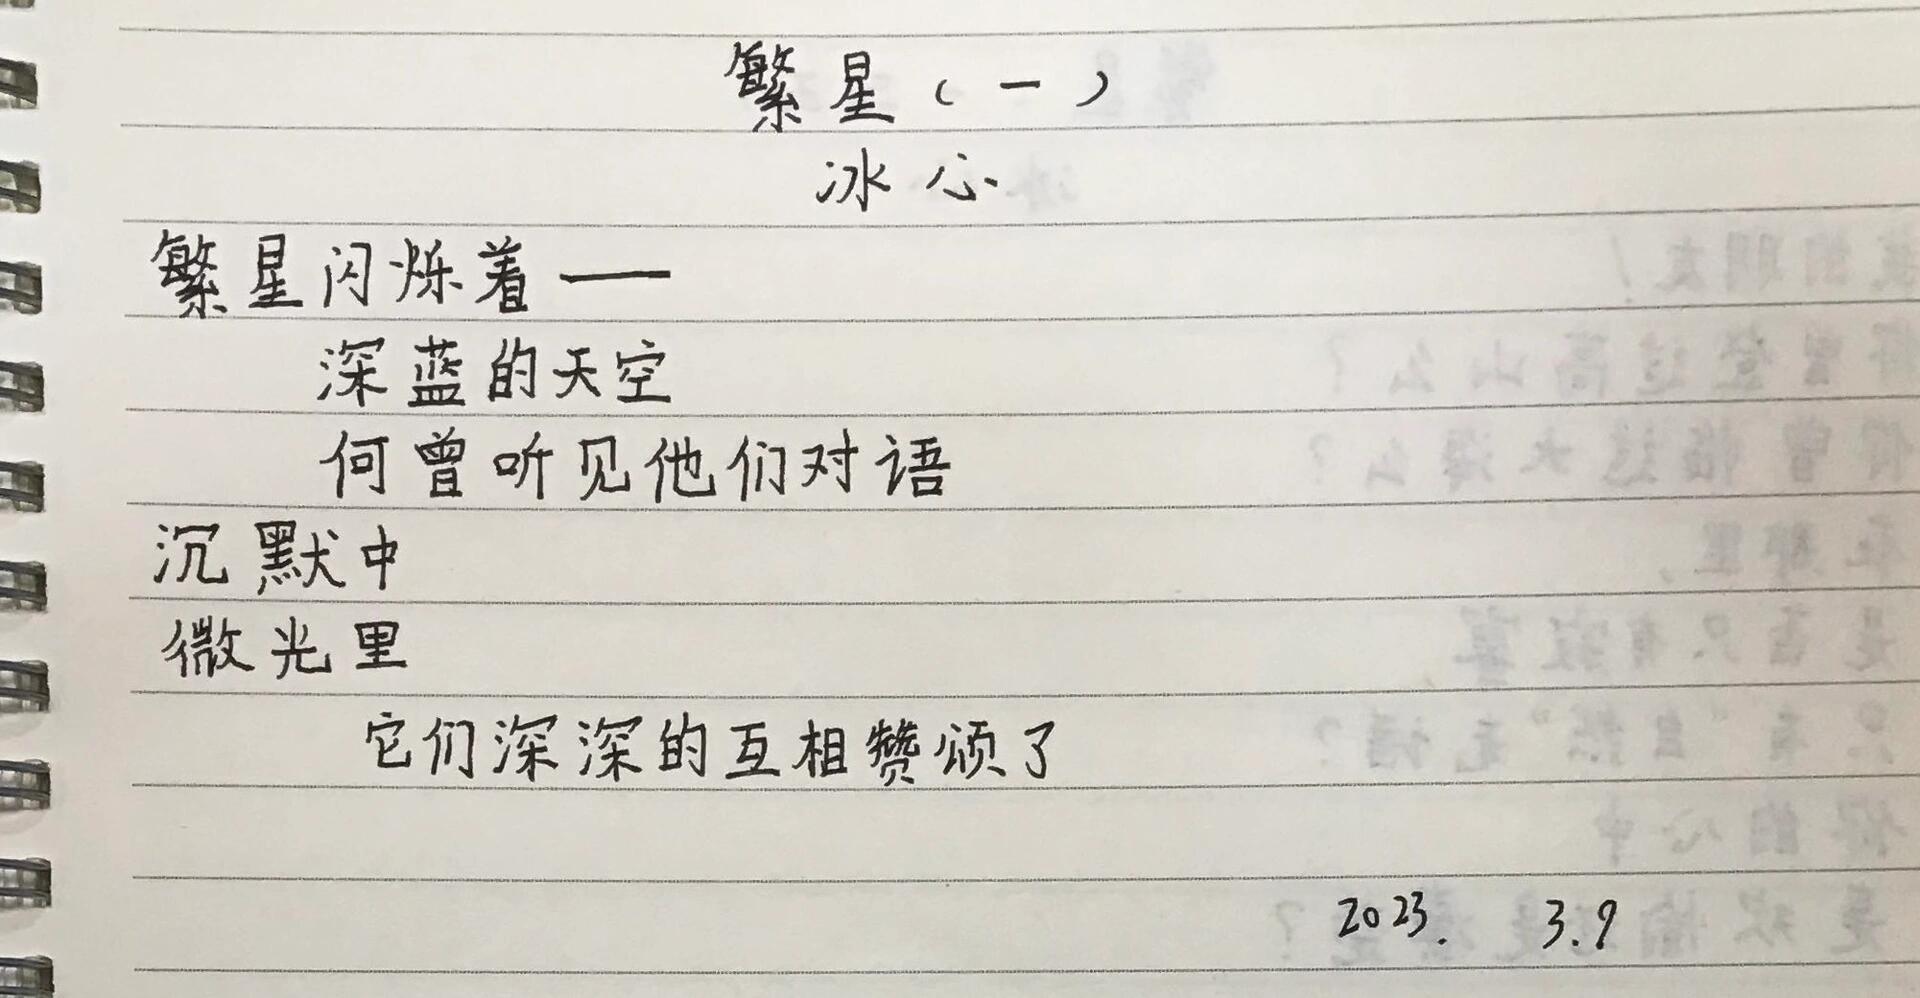 繁星（一）
冰心
繁星闪烁着——
深蓝的天空
何曾听见他们对语
沉默中
微光里
它们深深的互相赞颂了
2023. 3.9